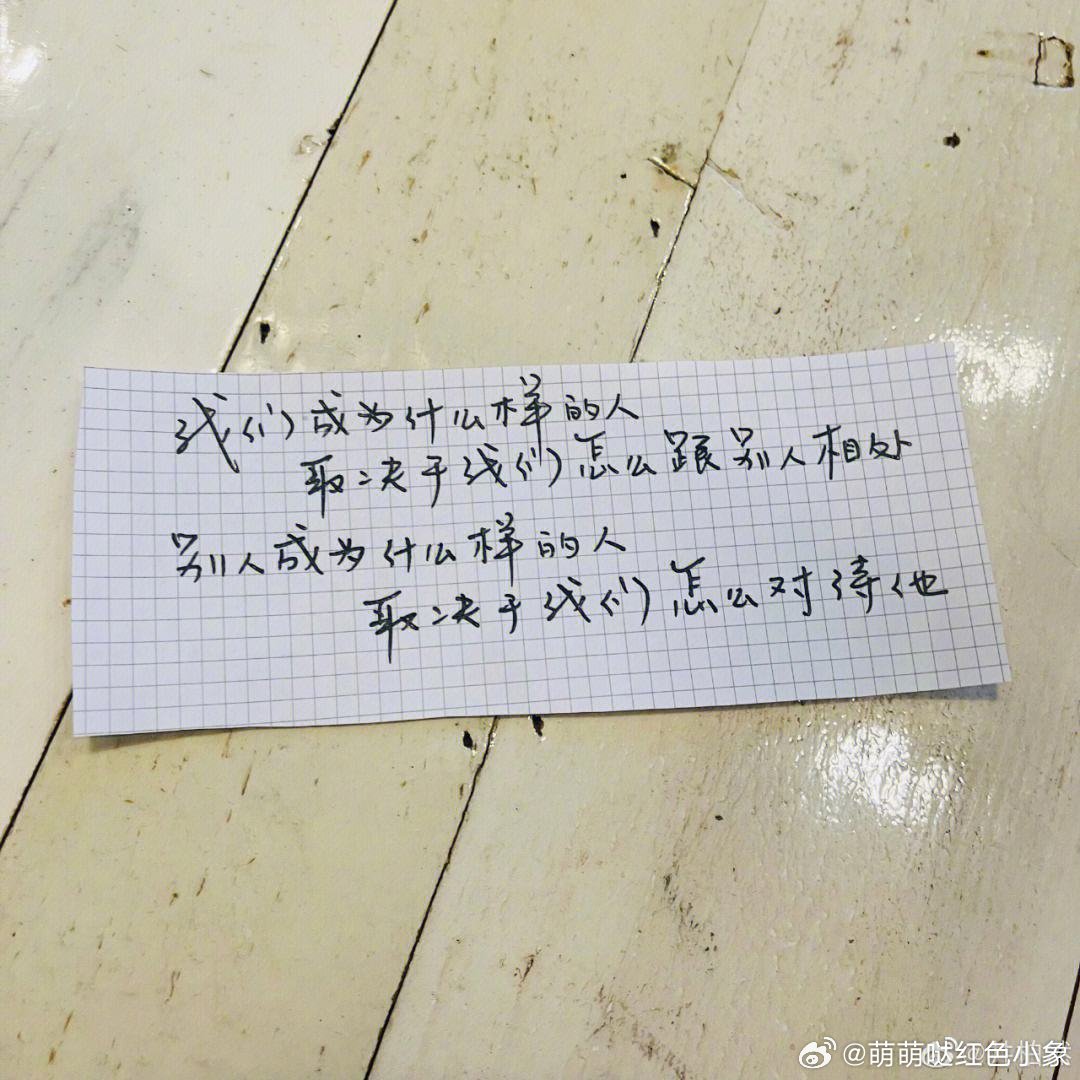 我们成为什么样的人
取决于我们怎么跟别人相处
别人成为什么样的人
取决于我们怎么对待他
@萌萌哒红色小象